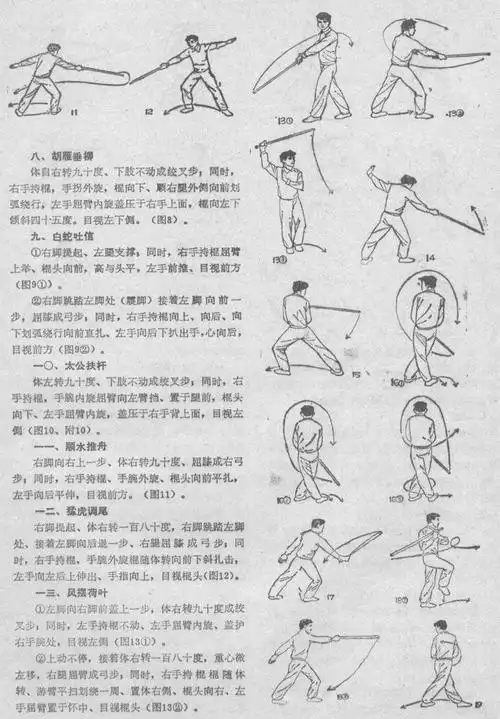 11
12
13①
13②
八、胡雁垂柳
体自右转九十度、下肢不动成绞叉步；同时，
右手持棍，手拐外旋，棍向下、顺右腿外侧向前划
弧绕行；左手屈臂内旋盖压于右手上面，棍向左下
倾斜四十五度。目视左下侧。（图8）。
九、白蛇吐信
①右脚提起、左腿支撑；同时，右手持棍屈臂
上举、棍头向前，高与头平，左手前推、目视前方
（图9①）。
②右脚跳踏左脚处（震脚）接着左脚向前一
步，屈膝成弓步；同时，右手持棍向上、向后、向
下划弧绕行向前直扎、左手向后下扒出手，心向后，
目视前方（图9②）。
一〇、太公扶杆
体左转九十度、下肢不动成绞叉步；同时，右
手持棍，手腕内旋屈臂向左臂挡、置于腿前，棍头
向下、左手屈臂内旋，盖压于右手背上面，目视左
侧（图10、附10）。
一一、顺水推舟
右脚向右上一步、体右转九十度、屈膝成右弓
步；同时，右手持棍、手腕外旋、棍头向前平扎，
左手向后平伸、目视前方。（图11）。
一二、猛虎调尾
右脚提起、体右转一百八十度，右脚跳踏左脚
处、接着左脚向后退一步、右腿屈膝成弓步；同
时，右手持棍、手腕外旋棍随体转向前下斜扎击，
左手向左后上伸出、手指向上，目视棍头（图12）。
一三、风摆荷叶
①左脚向右脚前盖上一步，体右转九十度成绞
叉步；同时，左手持棍不动、左手屈臂内旋、盖护
右手腕处，目视左侧（图13①）。
②上动不停，接着体右转一百八十度，重心微
左移，右腿屈臂成弓步；同时，右手持棍棍随体
转、游臂平扫划绕一周、置体右侧、棍头向右、左
手屈臂置于怀中、目视棍头（图13②）。
13③
14
15
16①
16②
16③
17
18①
18②
19